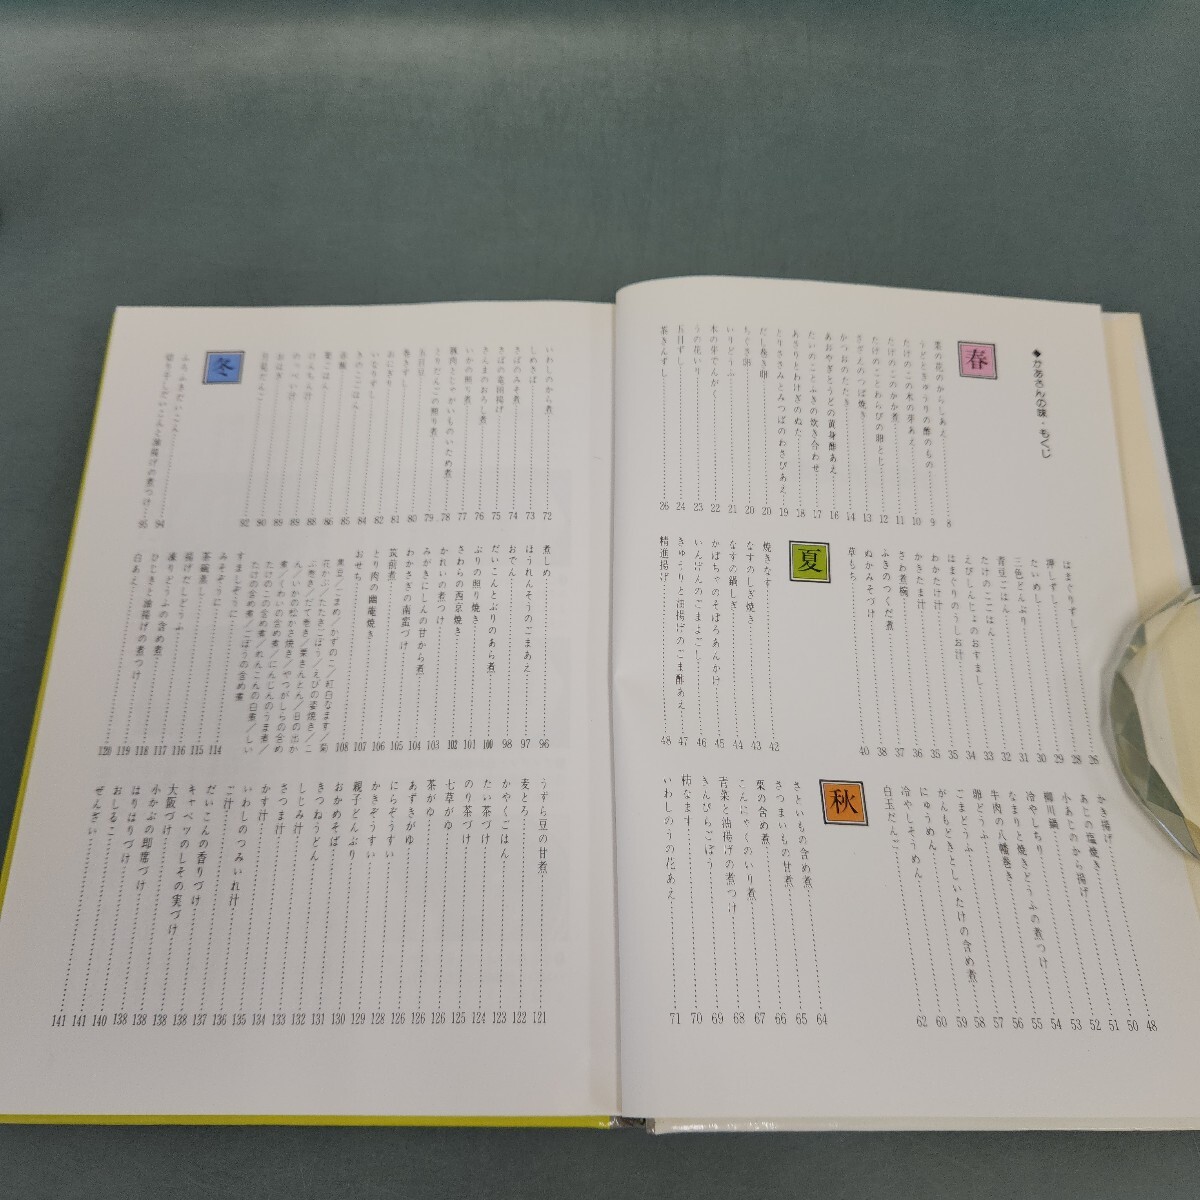 ◆かあさんの味・もくじ
春
菜の花のからしあえ 8
うどときゅうりの酢のもの 9
たけのこの木の芽あえ 10
たけのこのかか煮 11
たけのことわらびの卵とじ 12
さざえのつぼ焼き 13
かつおのたたき 14
あおやぎとうどの黄身酢あえ 16
たいのことふきの炊き合わせ 17
あさりとわけぎのぬた 18
とりささみとみつばのわさびあえ 19
だし巻き卵 20
ちぐさ卵 20
いりどうふ 21
木の芽でんがく 22
うの花いり 23
五目ずし 24
茶きんずし 26
はまぐりずし 26
押しずし 28
たいめし 29
三色どんぶり 30
青豆ごはん 32
たけのこごはん 33
えびしんじょのおすまし 34
はまぐりのうしお汁 35
わかたけ汁 35
かきたま汁 36
さわ煮椀 37
ふきのつくだ煮 38
ぬかみそづけ 38
草もち 40
夏
焼きなす 42
なすのしぎ焼き 43
なすの鍋しぎ 44
かぼちゃのそぼろあんかけ 45
いんげんのごまよごし 46
きゅうりと油揚げのごま酢あえ 47
精進揚げ 48
かき揚げ 48
あじの塩焼き 50
あじのから揚げ 51
小あじのから揚げ 52
柳川鍋 53
冷やしちり 54
なまりと焼きどうふの煮つけ 55
牛肉の八幡巻き 56
卵どうふ 57
ごまどうふ 58
がんもどきとしいたけの含め煮 59
にゅうめん 60
冷やしそうめん 62
白玉だんご
秋
さといもの含め煮 64
さつまいもの甘煮 65
栗の含め煮 66
こんにゃくのいり煮 67
青菜と油揚げの煮つけ 68
きんぴらごぼう 69
菊なます 70
いわしのうの花あえ 71
いわしのから煮 72
しめさば 73
さばのみそ煮 74
さばの竜田揚げ 75
さんまのおろし煮 76
いかの照り煮 77
豚肉とじゃがいものいため煮 77
とりだんごの照り煮 78
五目豆 79
巻きずし 80
おにぎり 81
いなりずし 82
きのこごはん 84
赤飯 85
栗ごはん 86
けんちん汁 88
のっぺい汁 89
おはぎ 89
月見だんご 90
冬
ふろふきだいこん 94
切り干しだいこんと油揚げの煮つけ 95
煮しめ 96
ほうれんそうのごまあえ 97
おでん 98
だいこんとぶりのあら煮 100
ぶりの照り焼き 101
さわらの西京焼き 102
かれいの煮つけ 103
みがきにしんの甘から煮 104
わかさぎの南蛮づけ 105
筑前煮 106
とり肉の幽庵焼き 107
おせち 108
黒豆／ごまめ／かずのこ／紅白なます／菊
花かぶ／たたきごぼう／えびの姿焼き／こ
ぶ巻き／だて巻き／栗きんとん／日の出か
ん／いかの松かさ焼き／やつがしらの含め
煮／くわいの含め煮／にんじんのうま煮／
たけのこの含め煮／れんこんの白煮／しい
たけの含め煮／ごぼうの含め煮
すましぞうに
みそぞうに 114
茶碗蒸し 115
揚げだしどうふ 116
凍りどうふの含め煮 117
ひじきと油揚げの煮つけ 118
白あえ 119
120
うずら豆の甘煮 121
麦とろ 122
かやくごはん 123
たい茶づけ 124
のり茶づけ 125
七草がゆ 126
茶がゆ 126
あずきがゆ 126
にらぞうすい 128
かきぞうすい 129
親子どんぶり 130
おかめそば 131
きつねうどん 132
しじみ汁 133
さつま汁 134
かす汁 135
いわしのつみいれ汁 136
ご汁 137
だいこんの香りづけ 138
キャベツのしその実づけ 138
大阪づけ 138
小かぶの即席づけ 138
はりはりづけ 140
おしるこ 141
ぜんざい 141